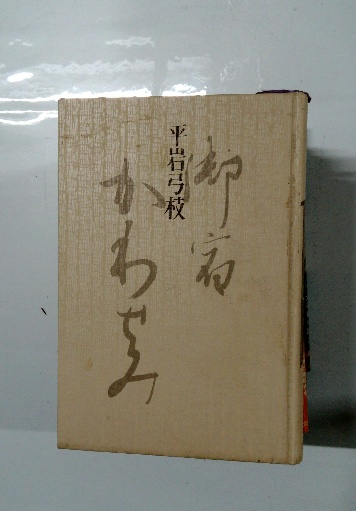 御宿
かわせみ
平岩弓枝